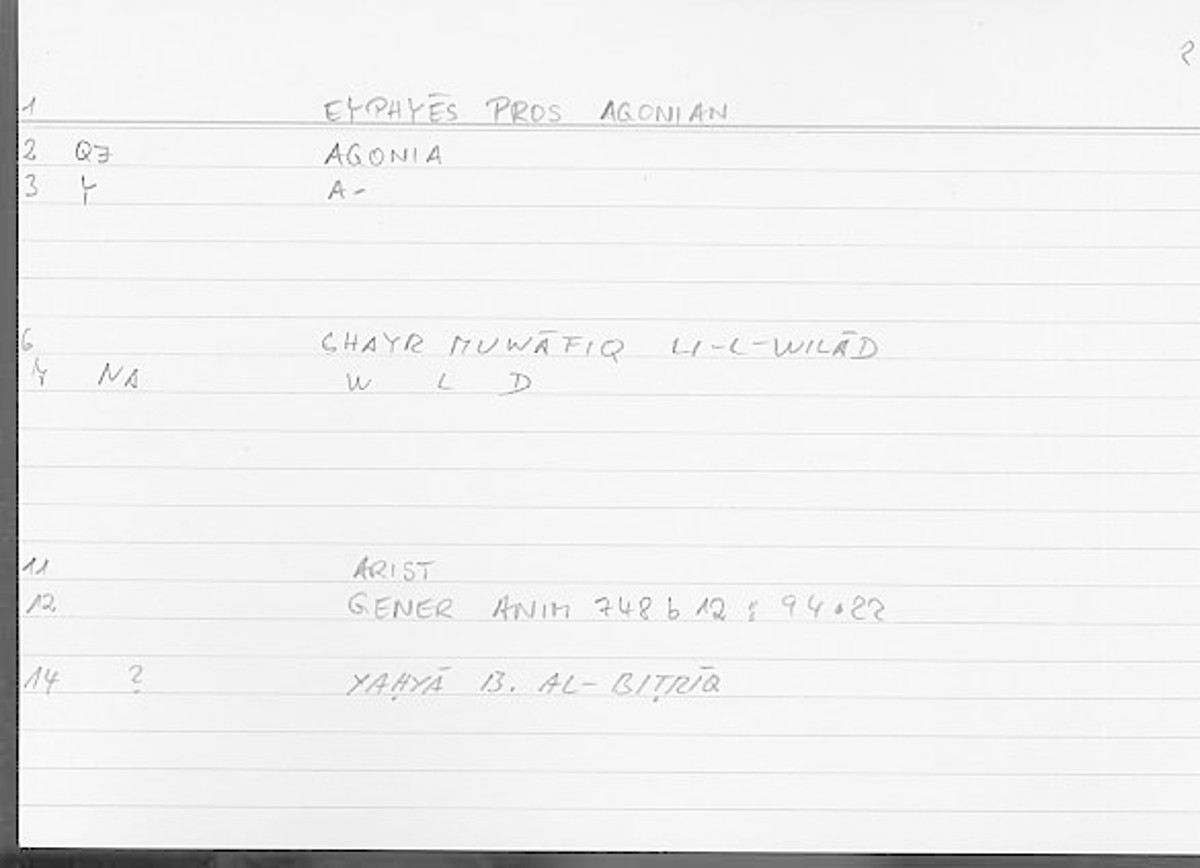 2
1 EYPHYĒS PROS AGONIAN
2 QJ AGONIA
3 Y A-
6 GHAYR MUWĀFIQ LI-L-WILĀD
Y NA W L D
11 ARIST
12 GENER ANIM 748 b 12 : 94.22
14 ? YAḤYĀ B. AL-BIṬRĪQ